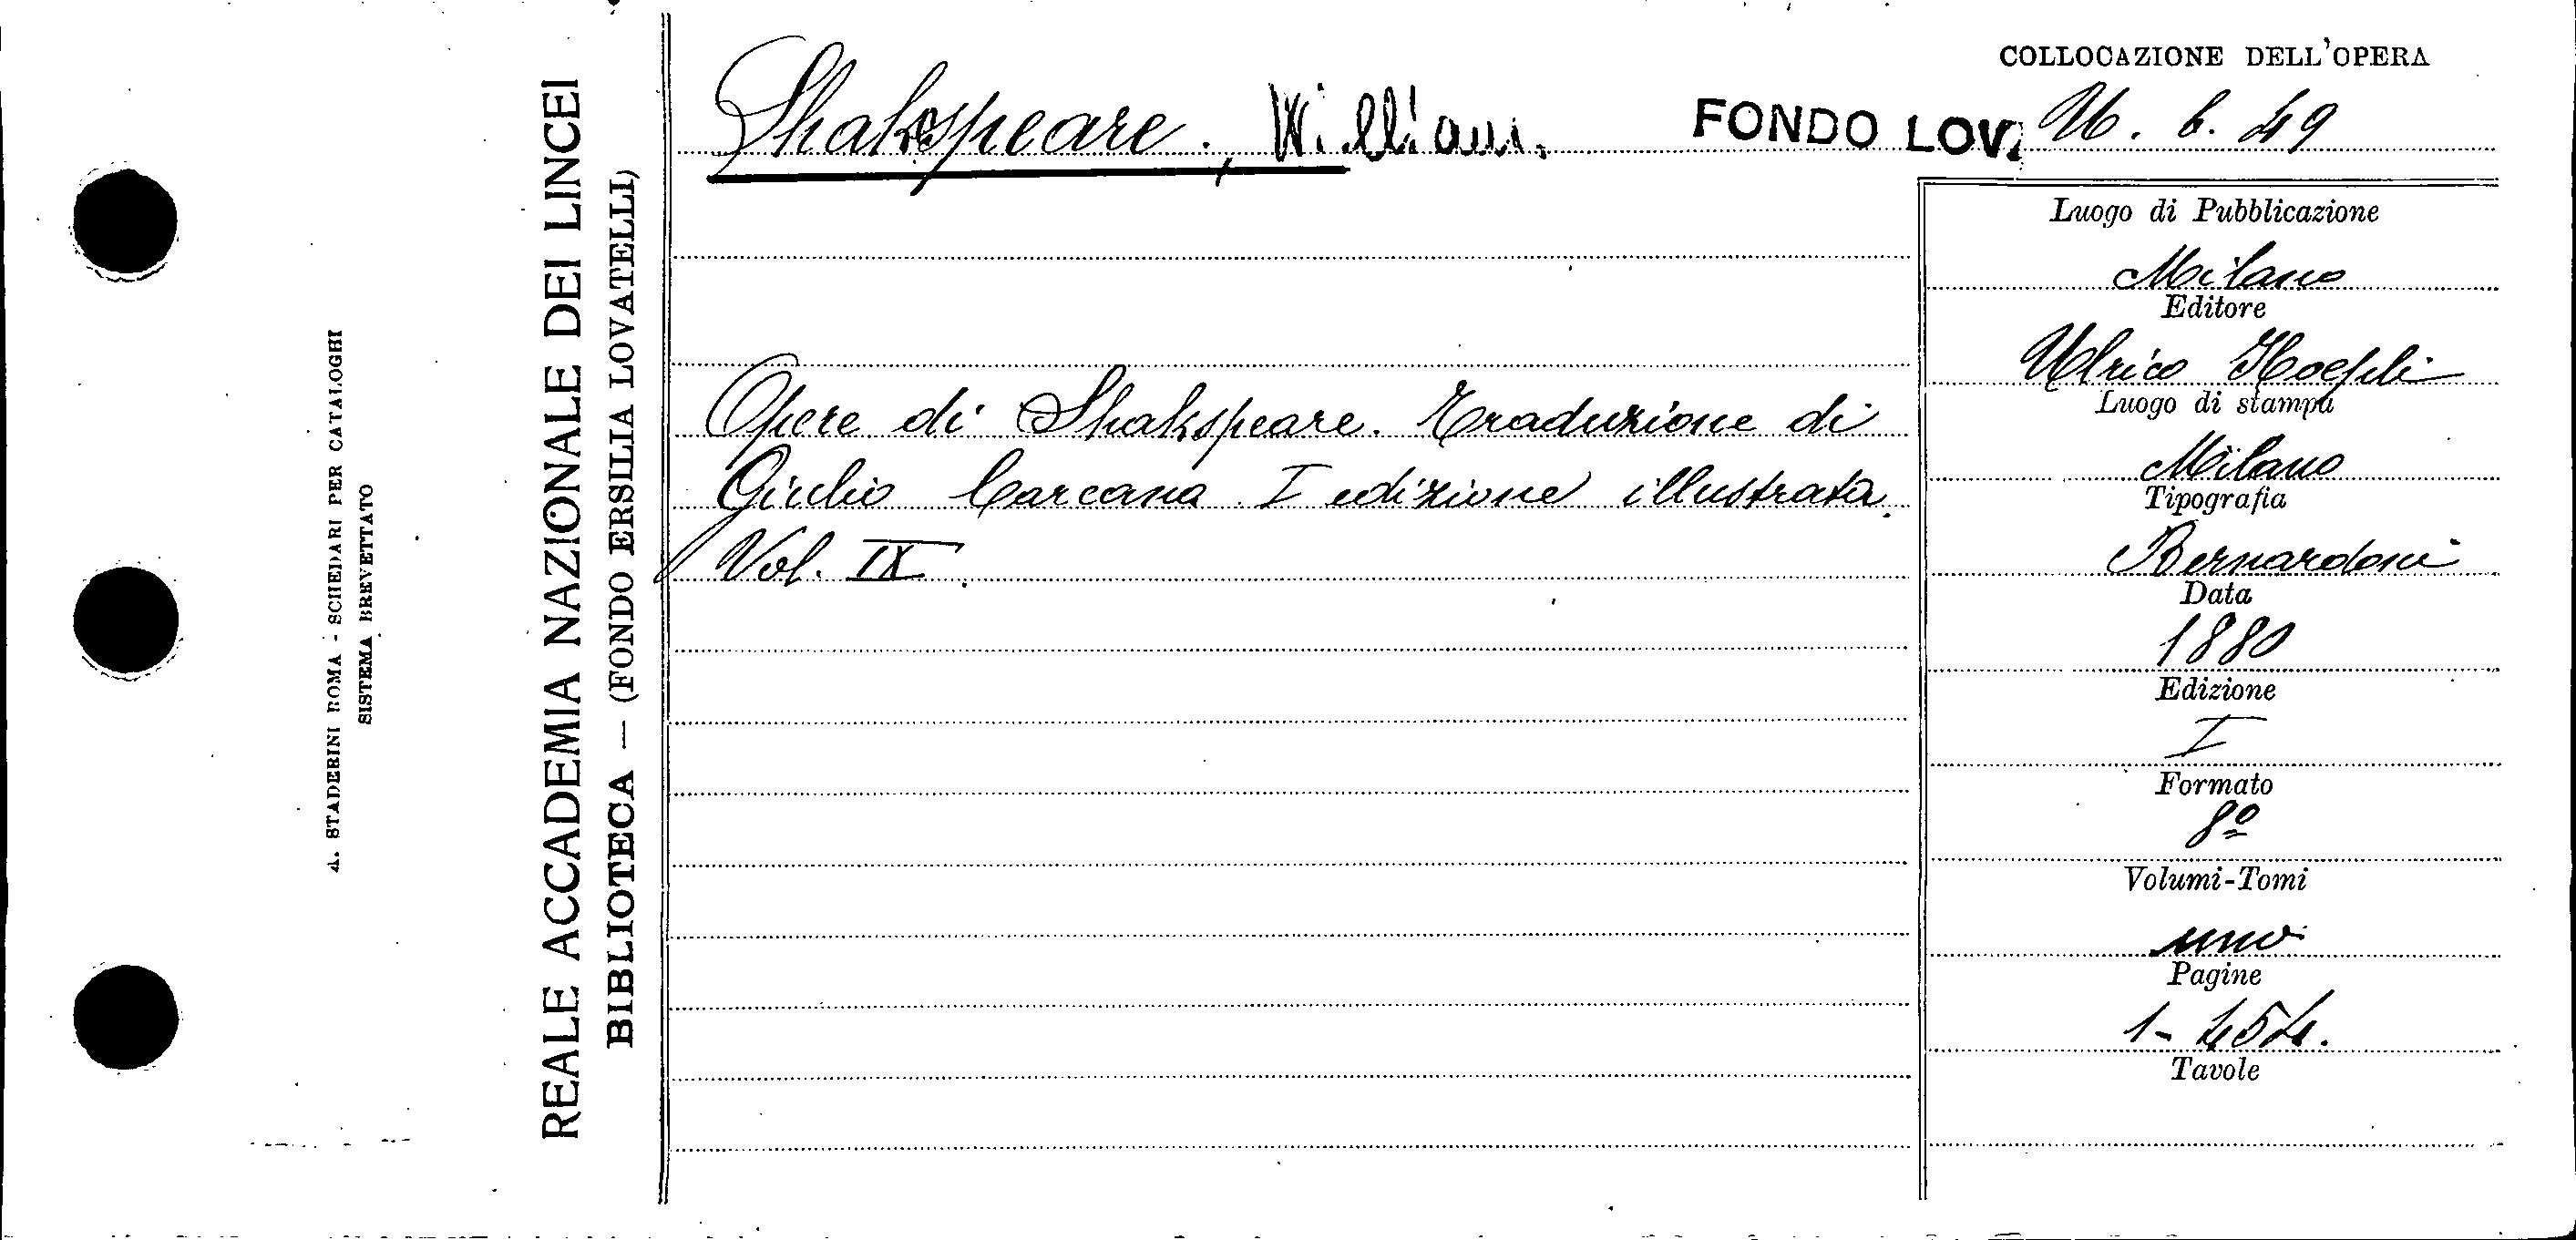 A. STADERINI ROMA - SCHEDARI PER CATALOGHI
SISTEMA BREVETTATO
REALE ACCADEMIA NAZIONALE DEI LINCEI
BIBLIOTECA — (FONDO ERSILIA LOVATELLI)
COLLOCAZIONE DELL'OPERA
Shakespeare., William. FONDO LOV. 16. b. 49
Opere di Shakspeare. Traduzione di
Giulio Carcana I edizione illustrata.
Vol. IX.
Luogo di Pubblicazione
Milano
Editore
Ulrico Hoepli
Luogo di stampa
Milano
Tipografia
Bernardoni
Data
1880
Edizione
I
Formato
8º
Volumi-Tomi
uno
Pagine
1-454.
Tavole